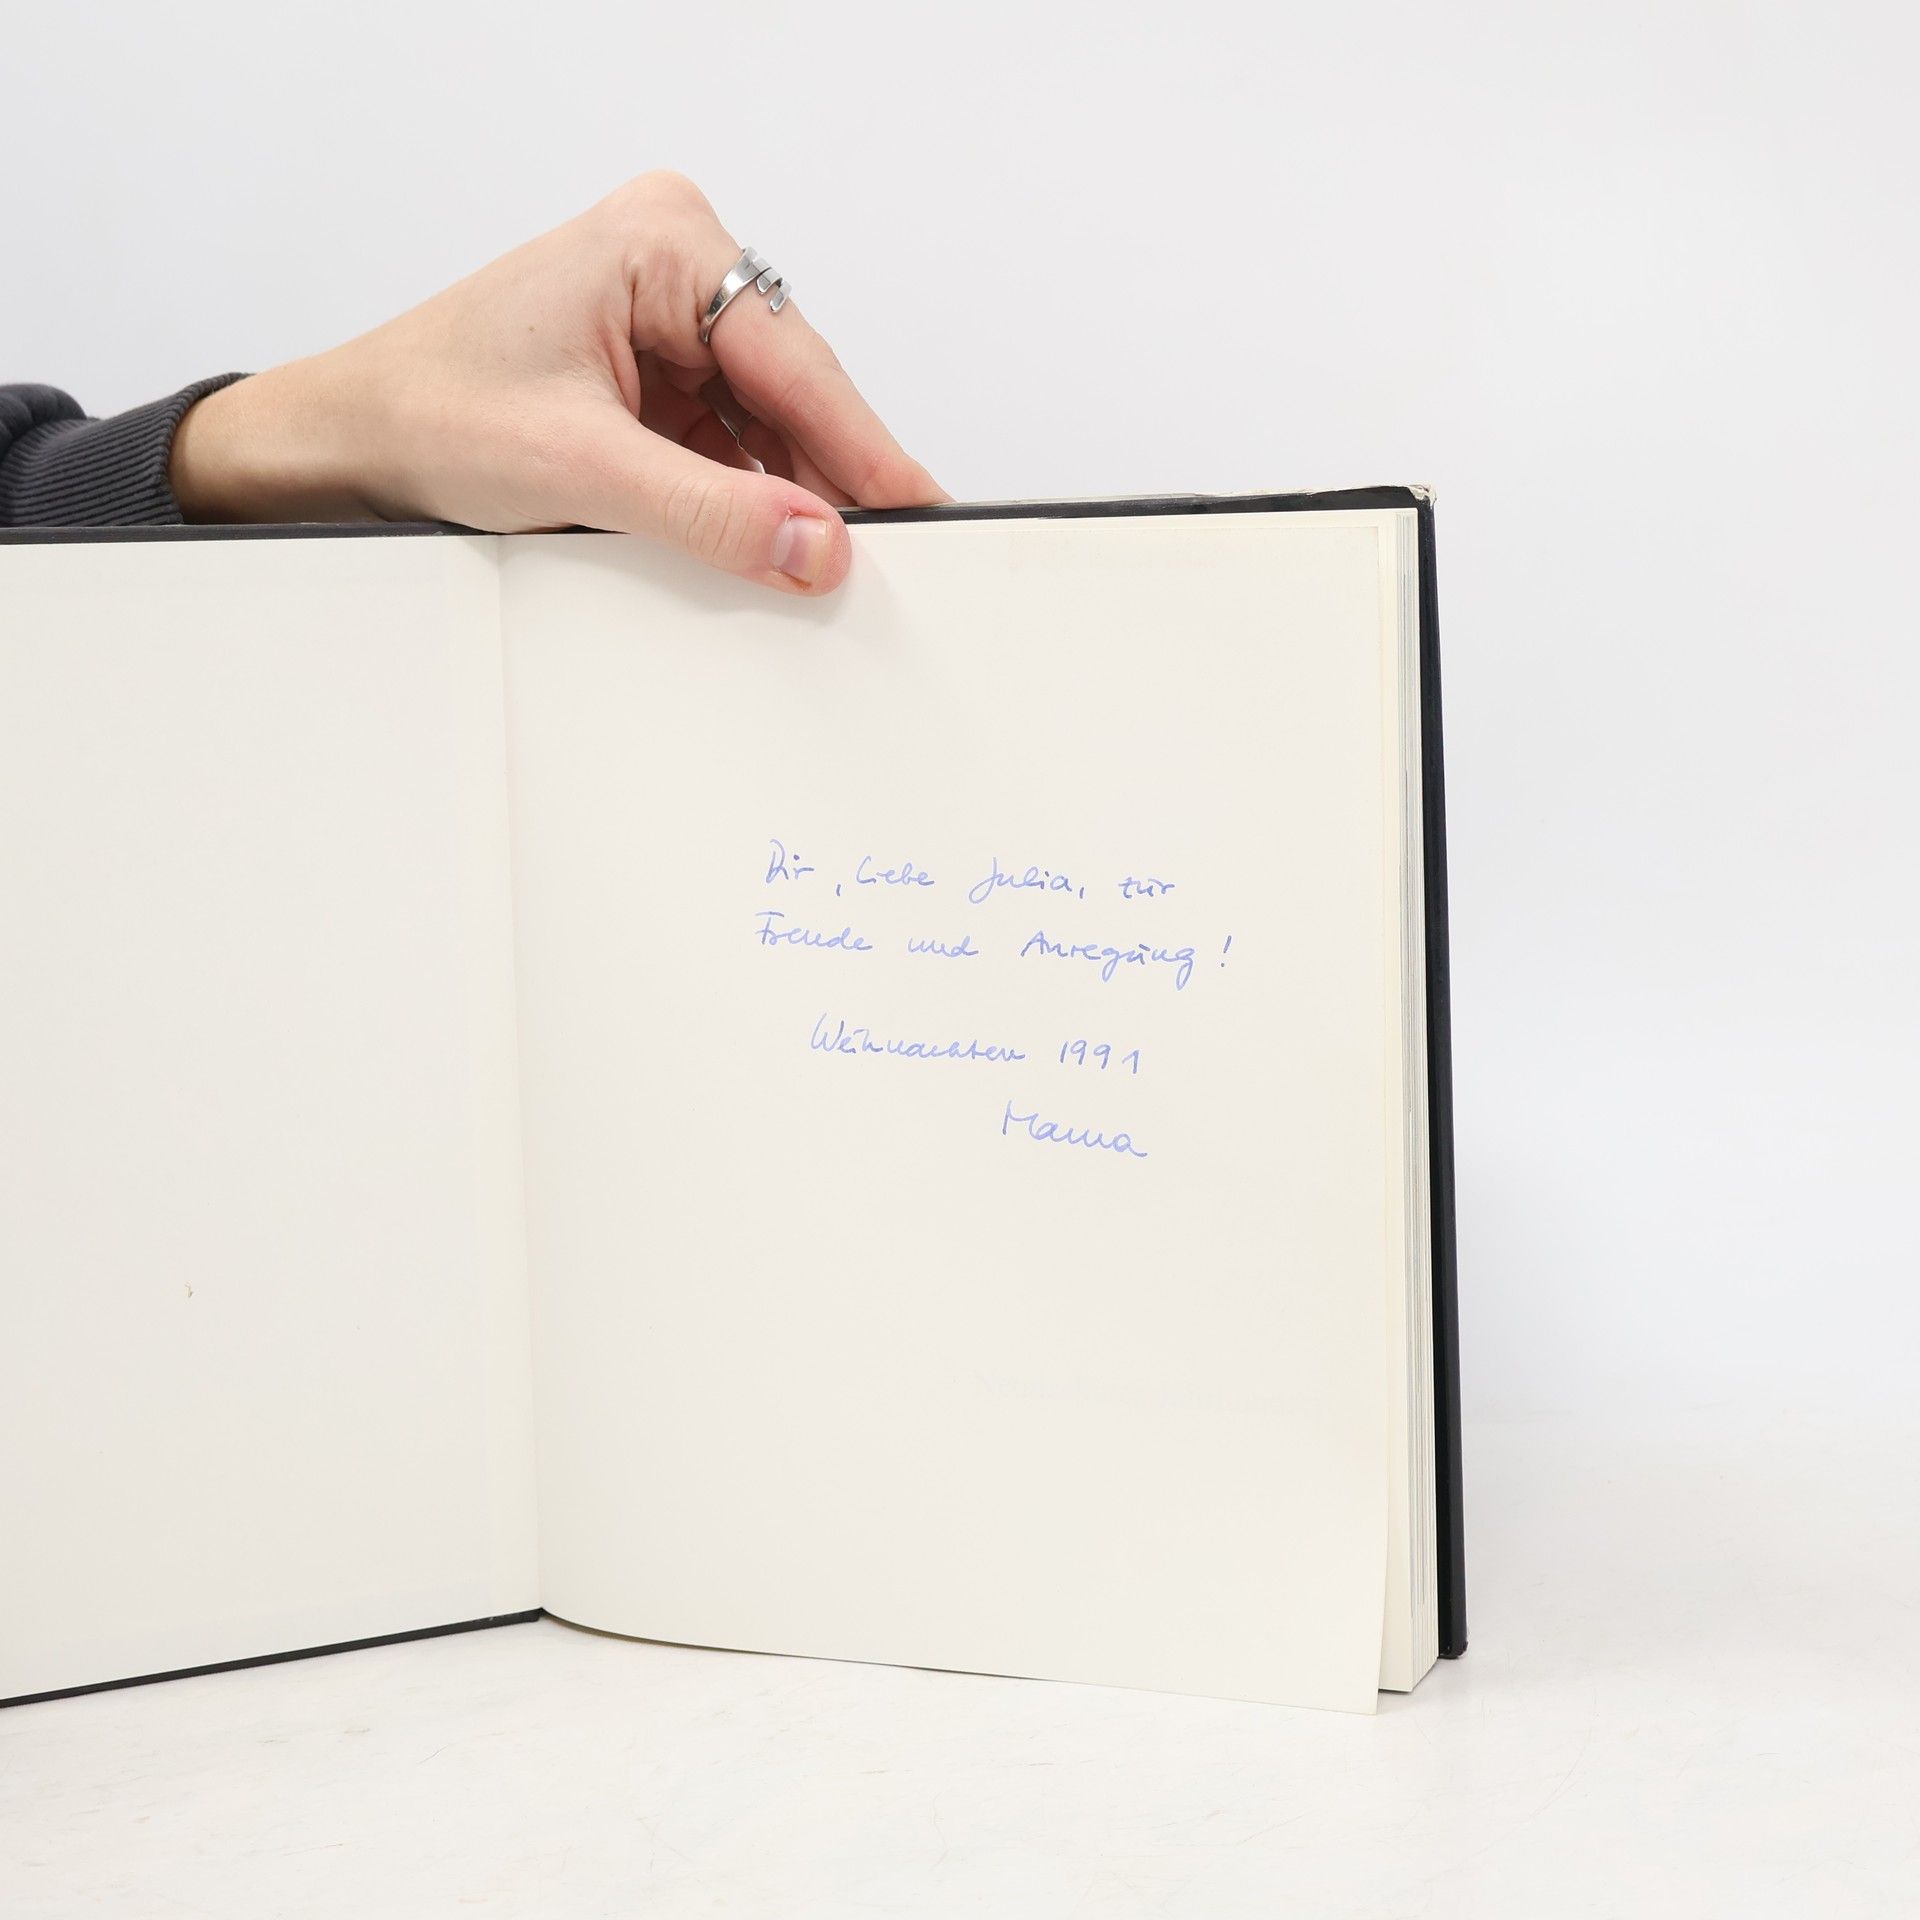 Dir, liebe Julia, zur
Freude und Anregung!
Weihnachten 1991
Mama